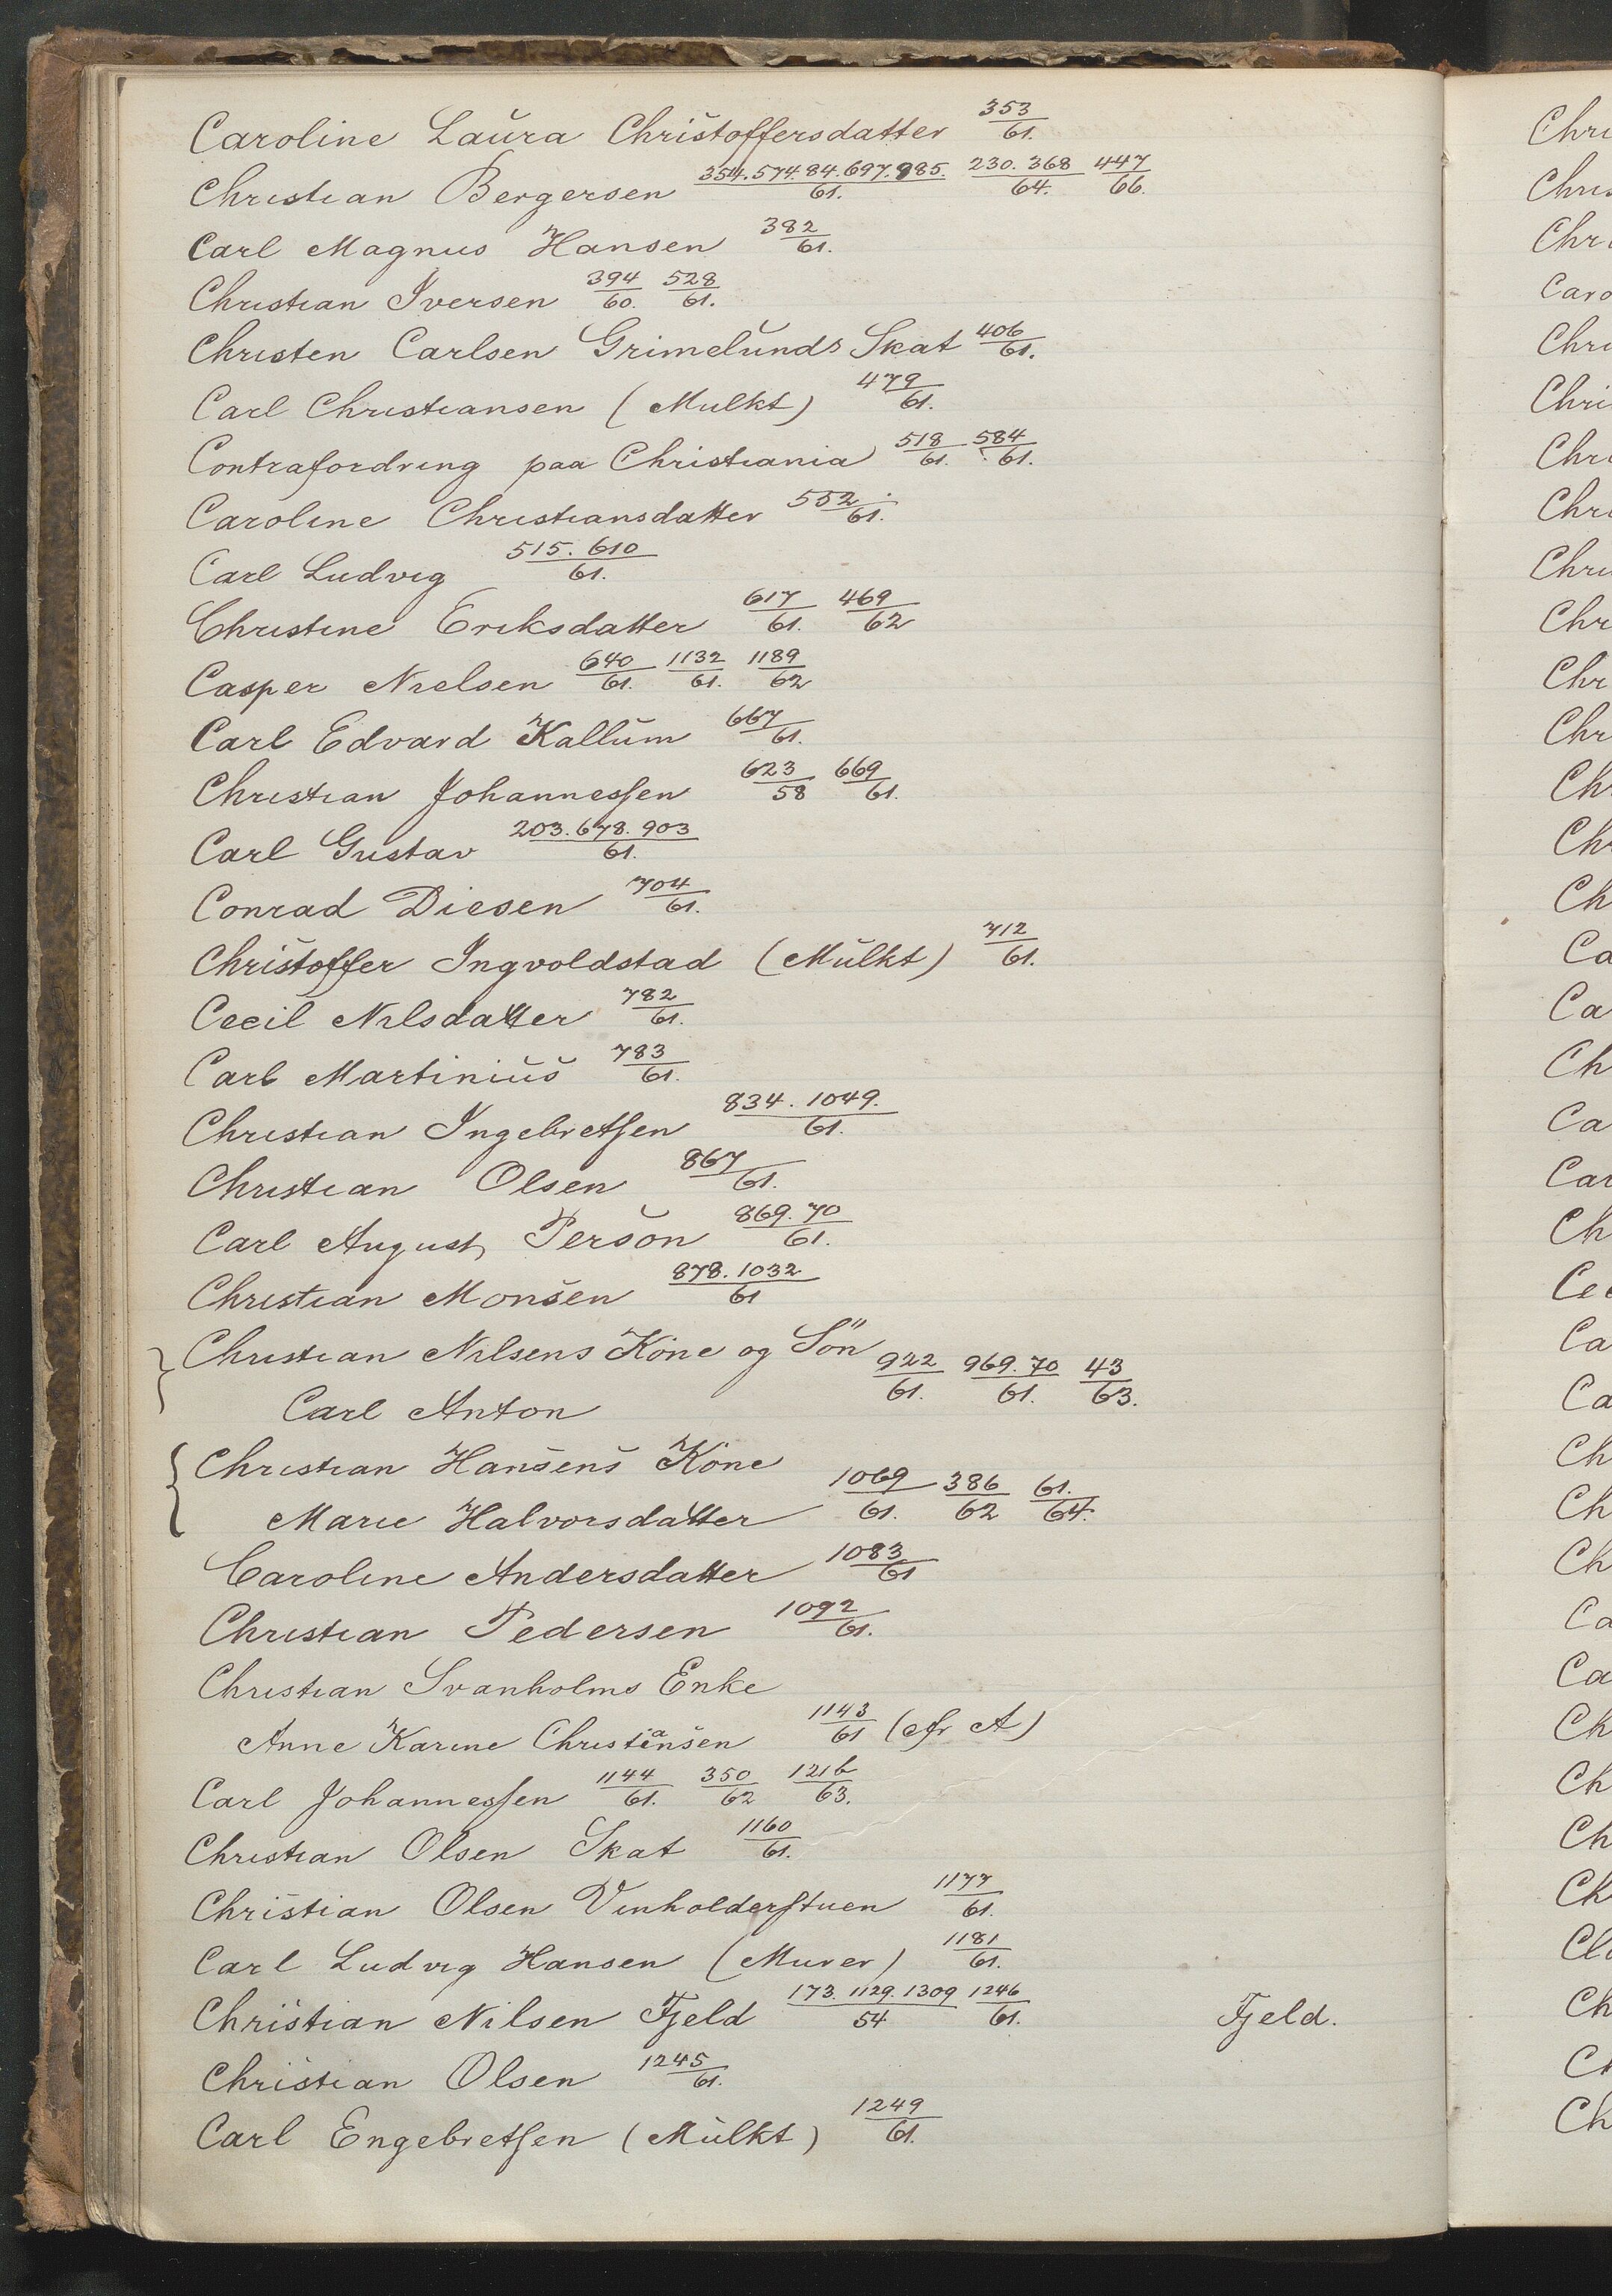 Caroline Laura Christoffersdatter 353/61.
Christian Bergersen 354.574.84.697.985./61. 230.368/64. 447/66.
Carl Magnus Hansen 382/61.
Christian Iversen 394/60. 528/61.
Christen Carlsen Grimelunds Skat 406/61.
Carl Christiansen (Mulkt) 479/61.
Contrafordring paa Christiania 518/61. 584/61.
Caroline Christiansdatter 552/61.
Carl Ludvig 515.610/61.
Christine Eriksdatter 617/61. 469/62
Casper Nielsen 640/61. 1132/61. 1189/62
Carl Edvard Kallum 667/61.
Christian Johannessen 623/58 669/61.
Carl Gustav 203.678.903/61.
Conrad Diesen 704/61.
Christoffer Ingvoldstad (Mulkt) 712/61.
Cecil Nilsdatter 782/61.
Carl Martinius 783/61.
Christian Ingebretsen 834.1049./61.
Christian Olsen 867/61.
Carl August Person 869.70/61.
Christian Monsen 878.1032/61
Christian Nilsens Kone og Sön
Carl Anton 922/61. 969.70/61. 43/63.
Christian Hansens Kone
Marie Halvorsdatter 1069/61. 386/62 61./64.
Caroline Andersdatter 1083/61
Christian Pedersen 1092/61.
Christian Svanholms Enke
Anne Karine Christiansen 1143/61 (cfr A)
Carl Johannessen 1144/61. 350/62 1216/63.
Christian Olsen Skat 1160/61.
Christian Olsen Vinholderstuen 1177/61.
Carl Ludvig Hansen (Murer) 1181/61.
Christian Nilsen Fjeld 173.1129.1309/54 1246/61. Fjeld.
Christian Olsen 1245/61.
Carl Engebretsen (Mulkt) 1249/61.